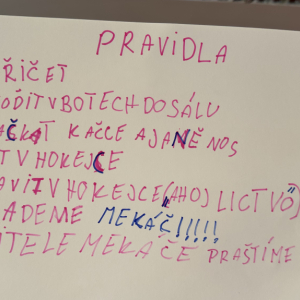 PRAVIDLA
ŘIČET
ODIT V BOTECH DO SÁLU
AČKAT KAČCE A JANĚ NOS
T V HOKEJCE
AVIT V HOKEJCE (AHOJ LICTVO)
ADEME MEKÁČ!!!!!
ITELE MEKAČE PRAŠTÍME